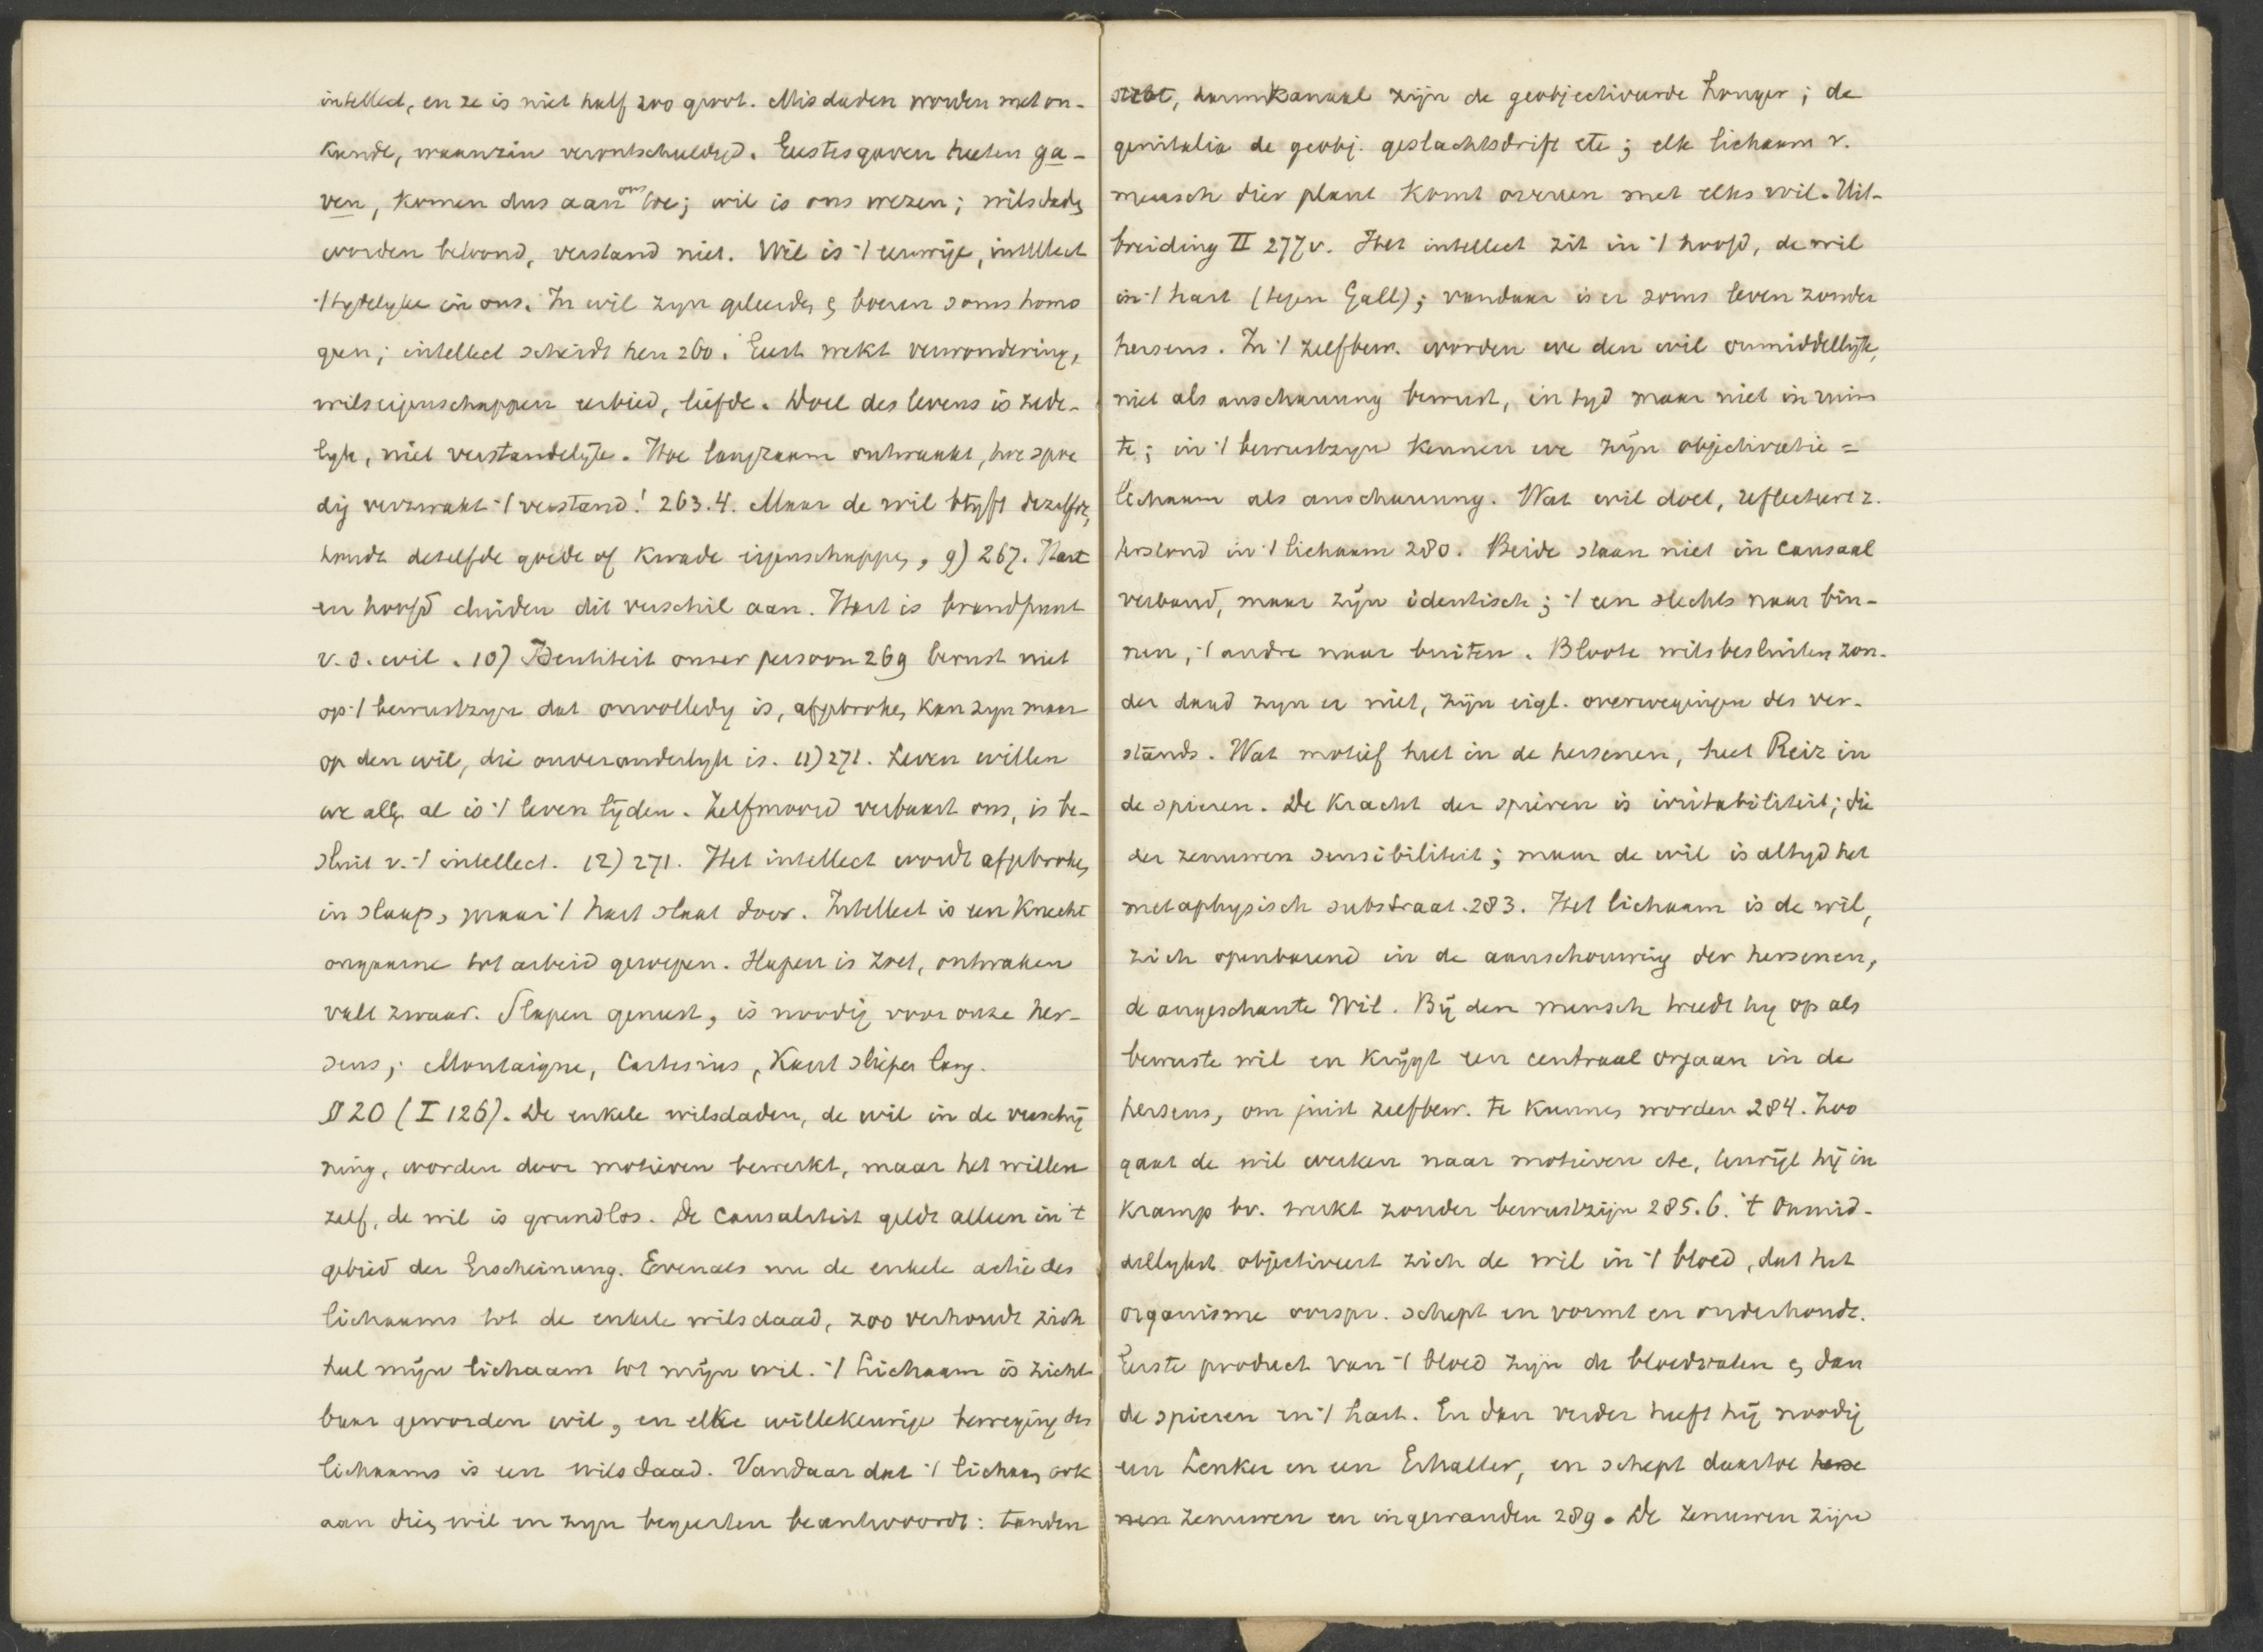 intellect, en ze is niet half zoo groot. Misdaden worden met on-
kunde, waanzin verontschuldigd. Geestesgaven heeten ga-
ven, komen dus aan ons toe; wil is ons wezen; wilsdaden
worden beloond, verstand niet. Wil is 't eeuwige, intellect
't tydelyke in ons. In wil zyn geleerden en boeren soms homo
geen; intellect scheidt hen 260. Geest wekt verwondering,
wilseigenschappen eerbied, liefde. Doel des levens is zede-
lyk, niet verstandelyk. Hoe langzaam ontwaakt, hoe spoe
dig verzwakt 't verstand! 263.4. Maar de wil blyft dezelfde,
houdt dezelfde goede of kwade eigenschappen, 9) 267. Hart
en hoofd duiden dit verschil aan. Hart is brandpunt
v. d. wil. 10) Identiteit onzer persoon 269 berust niet
op 't bewustzyn dat onvolledig is, afgebroken kan zyn maar
op den wil, die onveranderlyk is. 11) 271. Leven willen
we allen al is 't leven lijden. Zelfmoord verbaast ons, is be-
sluit v. 't intellect. 12) 271. Het intellect wordt afgebroken
in slaap, maar 't hart slaat door. Intellect is een knecht
ongaarne tot arbeid geroepen. Slapen is zoet, ontwaken
valt zwaar. Slapen geneest, is noodig voor onze her-
sens; Montaigne, Cartesius, Kant sliepen lang.
§ 20 (I 126). De enkele wilsdaden, de wil in de verschij
ning, worden door motieven bewerkt, maar het willen
zelf, de wil is grundlos. De causaliteit geldt alleen in 't
gebied der Erscheinung. Evenals nu de enkele actie des
lichaams tot de enkele wilsdaad, zoo verhoudt zich
heel mijn lichaam tot mijn wil. 't Lichaam is zicht
baar geworden wil, en elke willekeurige beweging des
lichaams is een wilsdaad. Vandaar dat 't lichaam ook
aan dien wil en zyn begeerten beantwoordt: tanden
darmkanaal zijn de geobjectiveerde honger; de
genitalia de geobj. geslachtsdrift etc; elk lichaam v.
mensch dier plant komt overeen met elks wil. Uit-
breiding II 277v. Het intellect zit in 't hoofd, de wil
in 't hart (tegen Gall); vandaar is er soms leven zonder
hersens. In 't zelfbew. worden we den wil onmiddellijk,
niet als anschauung bewust, in tyd maar niet in ruim
te; in 't bewustzyn kennen we zijn objectivatie =
lichaam als anschauung. Wat wil doet, reflecteert z.
in 't lichaam 280. Beide staan niet in causaal
verband, maar zijn identisch; 't een slechts naar bin-
nen, 't andre naar buiten. Bloote wilsbesluiten zon-
der daad zyn er niet, zijn eigl. overwegingen des ver-
stands. Wat motief heet in de hersenen, heet Reiz in
de spieren. De kracht der spieren is irritabiliteit; die
der zenuwen sensibiliteit; maar de wil is altyd het
metaphysisch substraat. 283. Het lichaam is de wil,
zich openbarend in de aanschouwing der hersenen,
de angeschaute Wil. Bij den mensch treedt hy op als
bewuste wil en krijgt een centraal orgaan in de
hersens, om juist zelfbew. te kunnen worden 284. Zoo
gaat de wil werken naar motieven etc, terwijl hij in
kramp bv. werkt zonder bewustzijn 285.6. 't Onmid-
dellykst objectiveert zich de wil in 't bloed, dat het
organisme oorspr. schept en vormt en onderhoudt.
Eerste product van 't bloed zijn de bloedvaten en dan
de spieren en 't hart. En dan verder heeft hij noodig
een Lenker en een Erhalter, en schept daartoe herse
nen zenuwen en ingewanden 289. De zenuwen zijn